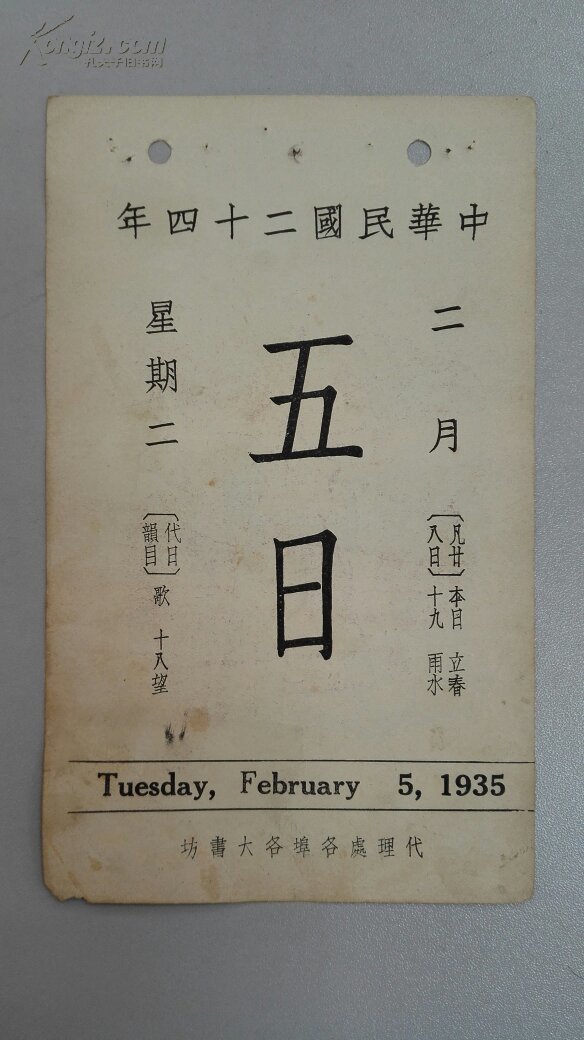 Kongfz.com
孔夫子旧书网
中華民國二十四年
二月
〔凡廿八日〕
本日 立春
十九 雨水
五日
星期二
〔代日韻目〕歌 十八望
Tuesday, February 5, 1935
代理處各埠各大書坊